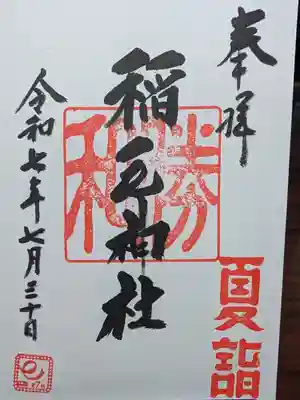 奉拝
夏詣
稲毛神社
勝
和
令和七年七月三十日